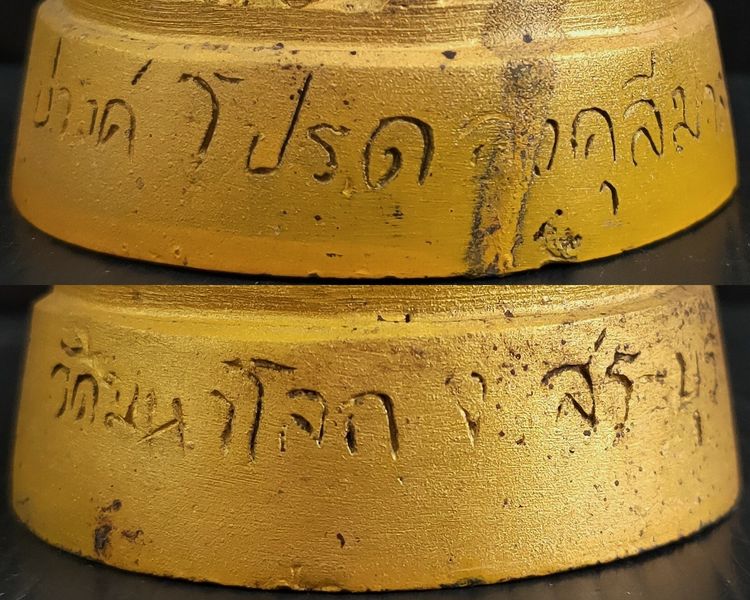 ปางค์ โปรด องคุลีมา
วัดมหาโลก จ สระบุ